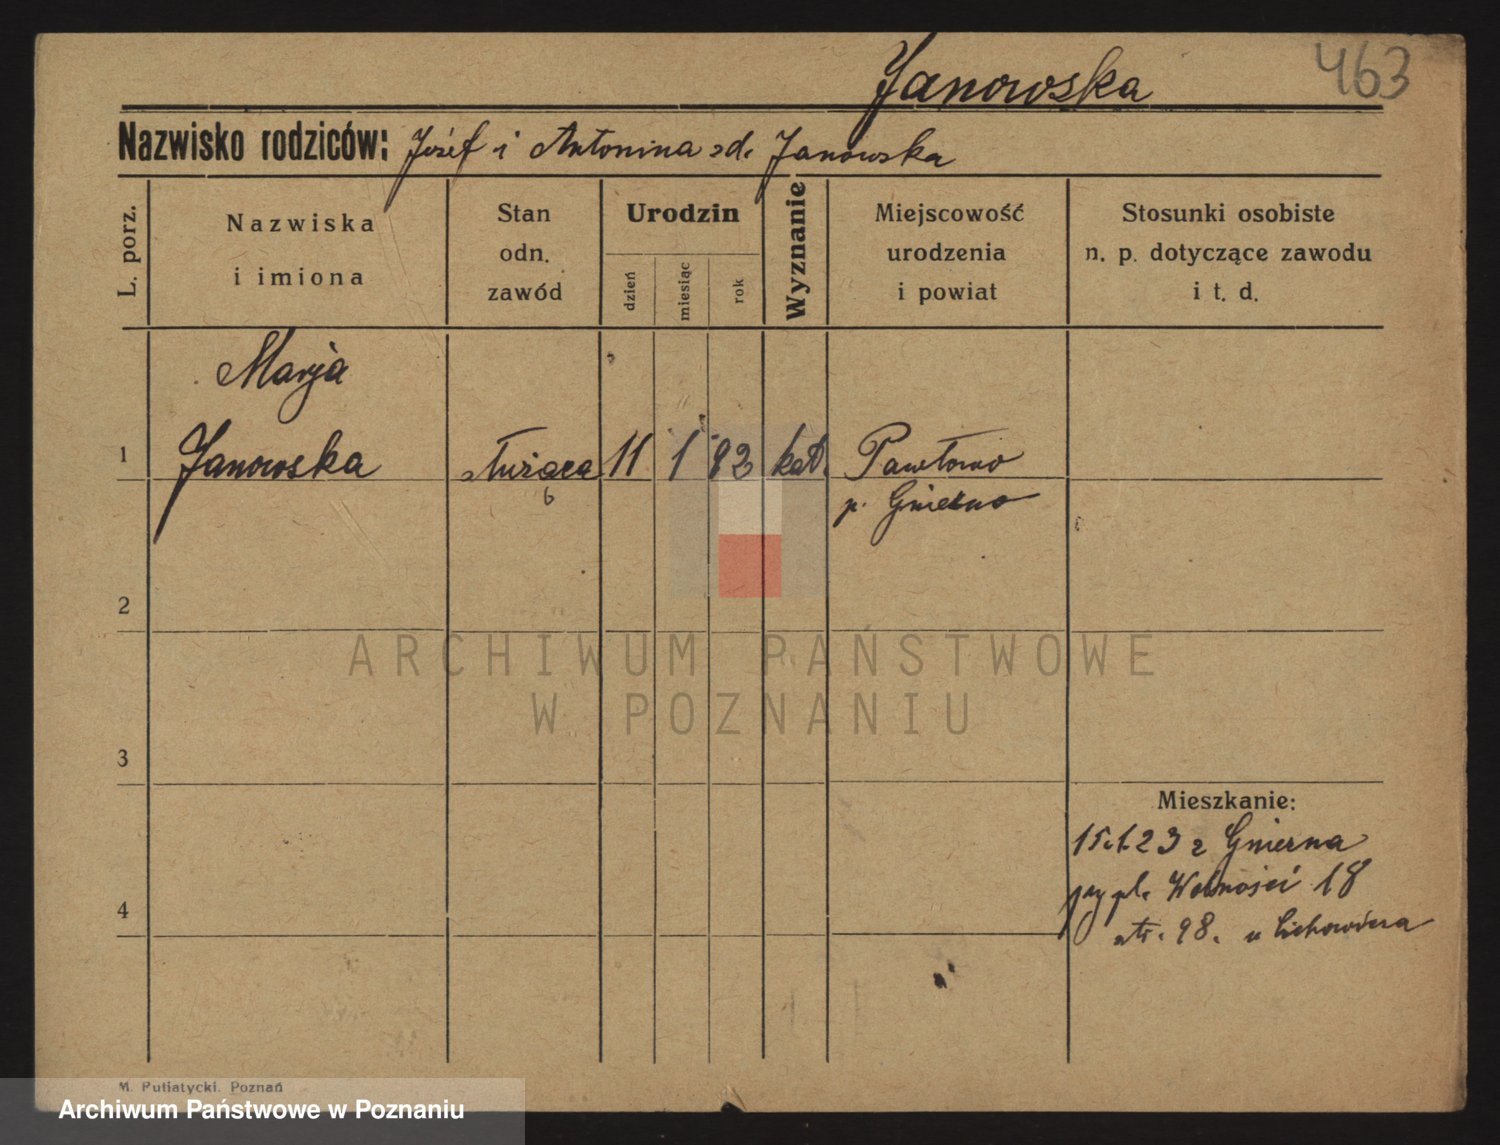 Janowska
463
Nazwisko rodziców: Józef i Antonina zd. Janowska
L. porz.
Nazwiska
i imiona
Stan
odn.
zawód
Urodzin
dzień
miesiąc
rok
Wyznanie
Miejscowość
urodzenia
i powiat
Stosunki osobiste
n. p. dotyczące zawodu
i t. d.
Marja
1 Janowska służąca 11 1 82 kat. Pawłowo
p. Gniezno
2
ARCHIWUM PAŃSTWOWE
W POZNANIU
3
Mieszkanie:
15.1.23 z Gniezna
pl. Wolności 18
4
str. 98. u
M. Putiatycki, Poznań
Archiwum Państwowe w Poznaniu